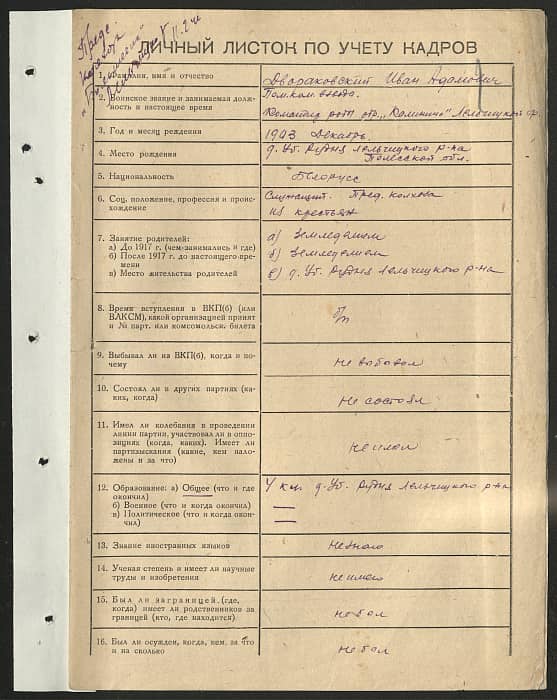 ЛИЧНЫЙ ЛИСТОК ПО УЧЕТУ КАДРОВ
1. Фамилия, имя и отчество
Двораковский Иван Адамович
2. Воинское звание и занимаемая долж-
ность в настоящее время
Пом. ком. взвода.
Командир роты отр. „Калинина" Лельчицкой бр.
3. Год и месяц рождения
Декабрь.
4. Место рождения
д. Уб. Рудня Лельчицкого р-на
Полесской обл.
5. Национальность
Белорусс
6. Соц. положение, профессия и проис-
хождение
Служащий. Пред. колхоза
из крестьян
7. Занятие родителей:
а) До 1917 г. (чем-занимались и где)
б) После 1917 г. до настоящего-вре-
мени
в) Место жительства родителей
а) Земледелием
б) Земледелием
в) д. Уб. Рудня Лельчицкого р-на
8. Время вступления в ВКП(б) (или
ВЛКСМ), какой организацией принят
и № парт. или комсомольск. билета
б/п
9. Выбывал ли из ВКП(б), когда и по-
чему
не выбывал
10. Состоял ли в других партиях (ка-
ких, когда)
не состоял
11. Имел ли колебания в проведении
линии партии, участвовал ли в оппо-
зициях (когда, каких). Имеет ли
партвзыскания (какие, кем нало-
жены и за что)
не имел
12. Образование: а) Общее (что и где
окончил)
б) Военное (что и когда окончил)
в) Политическое (что и когда окон-
чил)
4 кл. д. Уб. Рудня Лельчицкого р-на
—
—
13. Знание иностранных языков
не знаю
14. Ученая степень и имеет ли научные
труды и изобретения
не имею
15. Был ли заграницей (где,
когда) имеет ли родственников за
границей (кто, где находится)
не был
16. Был ли осужден, когда, кем, за что
и на сколько
не был